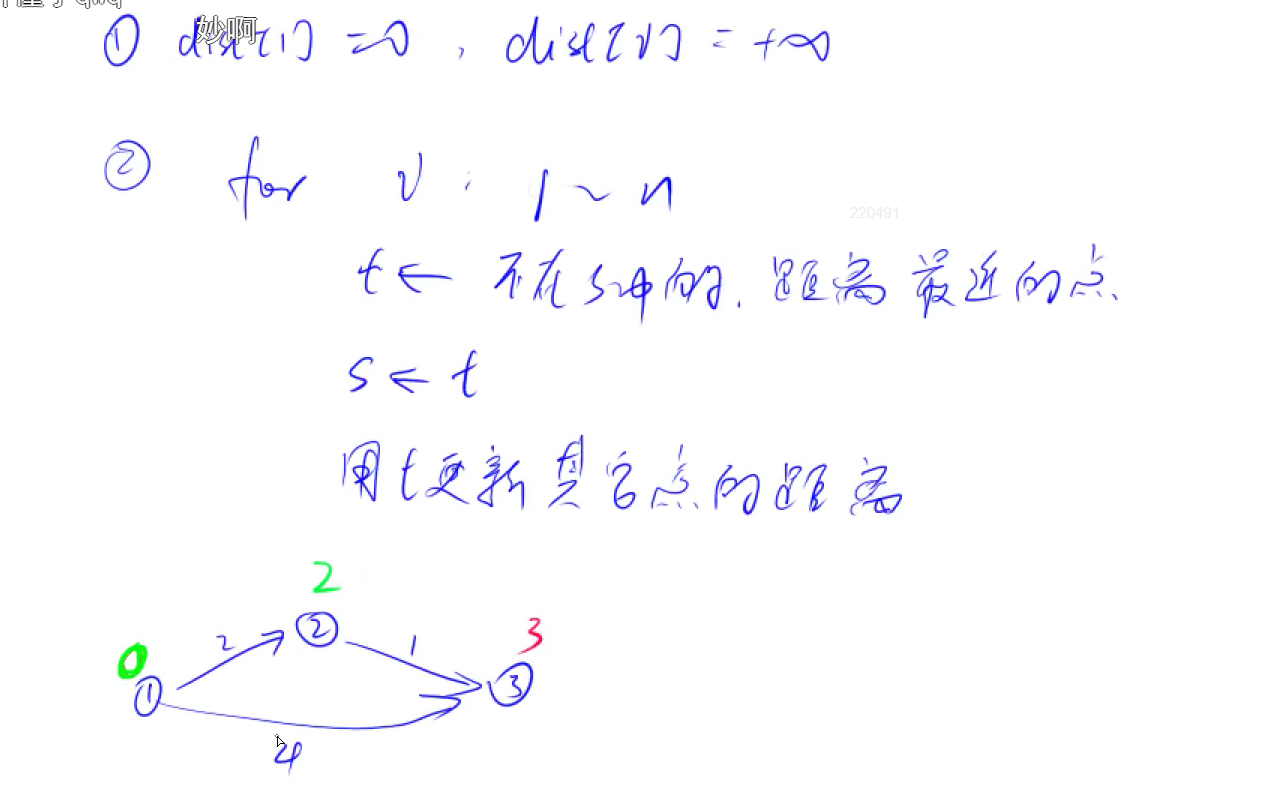 妙啊
① dist[1] = 0, dist[v] = +∞
② for v: 1 ~ n
220491
t ← 不在s中的, 距离最近的点.
s ← t
用t更新其它点的距离
2
0
2
②
1
3
①
③
4